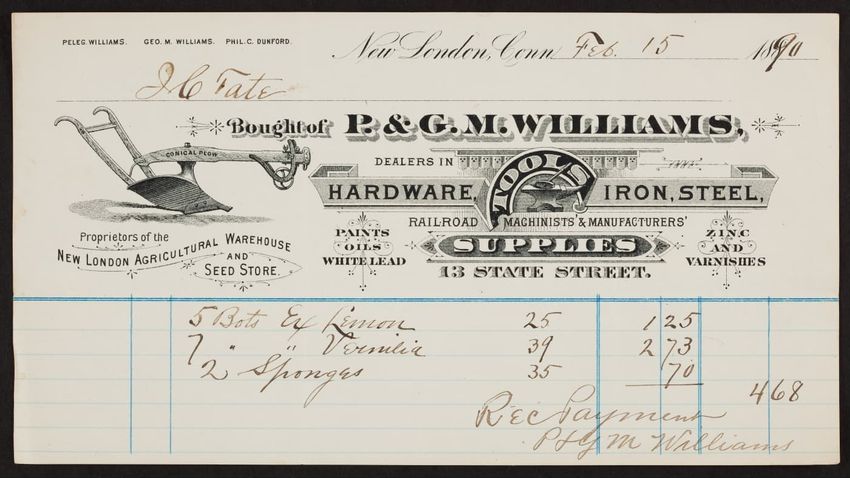 PELEG. WILLIAMS. GEO. M. WILLIAMS. PHIL. C. DUNFORD.
New London, Conn. Feb. 15 1890
J C Tate
Bought of P. & G. M. WILLIAMS,
CONICAL PLOW
DEALERS IN
HARDWARE, TOOLS IRON, STEEL,
RAILROAD MACHINISTS' & MANUFACTURERS'
SUPPLIES
13 STATE STREET.
PAINTS
OILS
WHITE LEAD
ZINC
AND
VARNISHES
Proprietors of the
NEW LONDON AGRICULTURAL WAREHOUSE
AND
SEED STORE.
5 Bots Ex Lemon 25 1 25
7 " " Vernilia 39 2 73
2 Sponges 35 70
4 68
Rec Payment
P & G M Williams